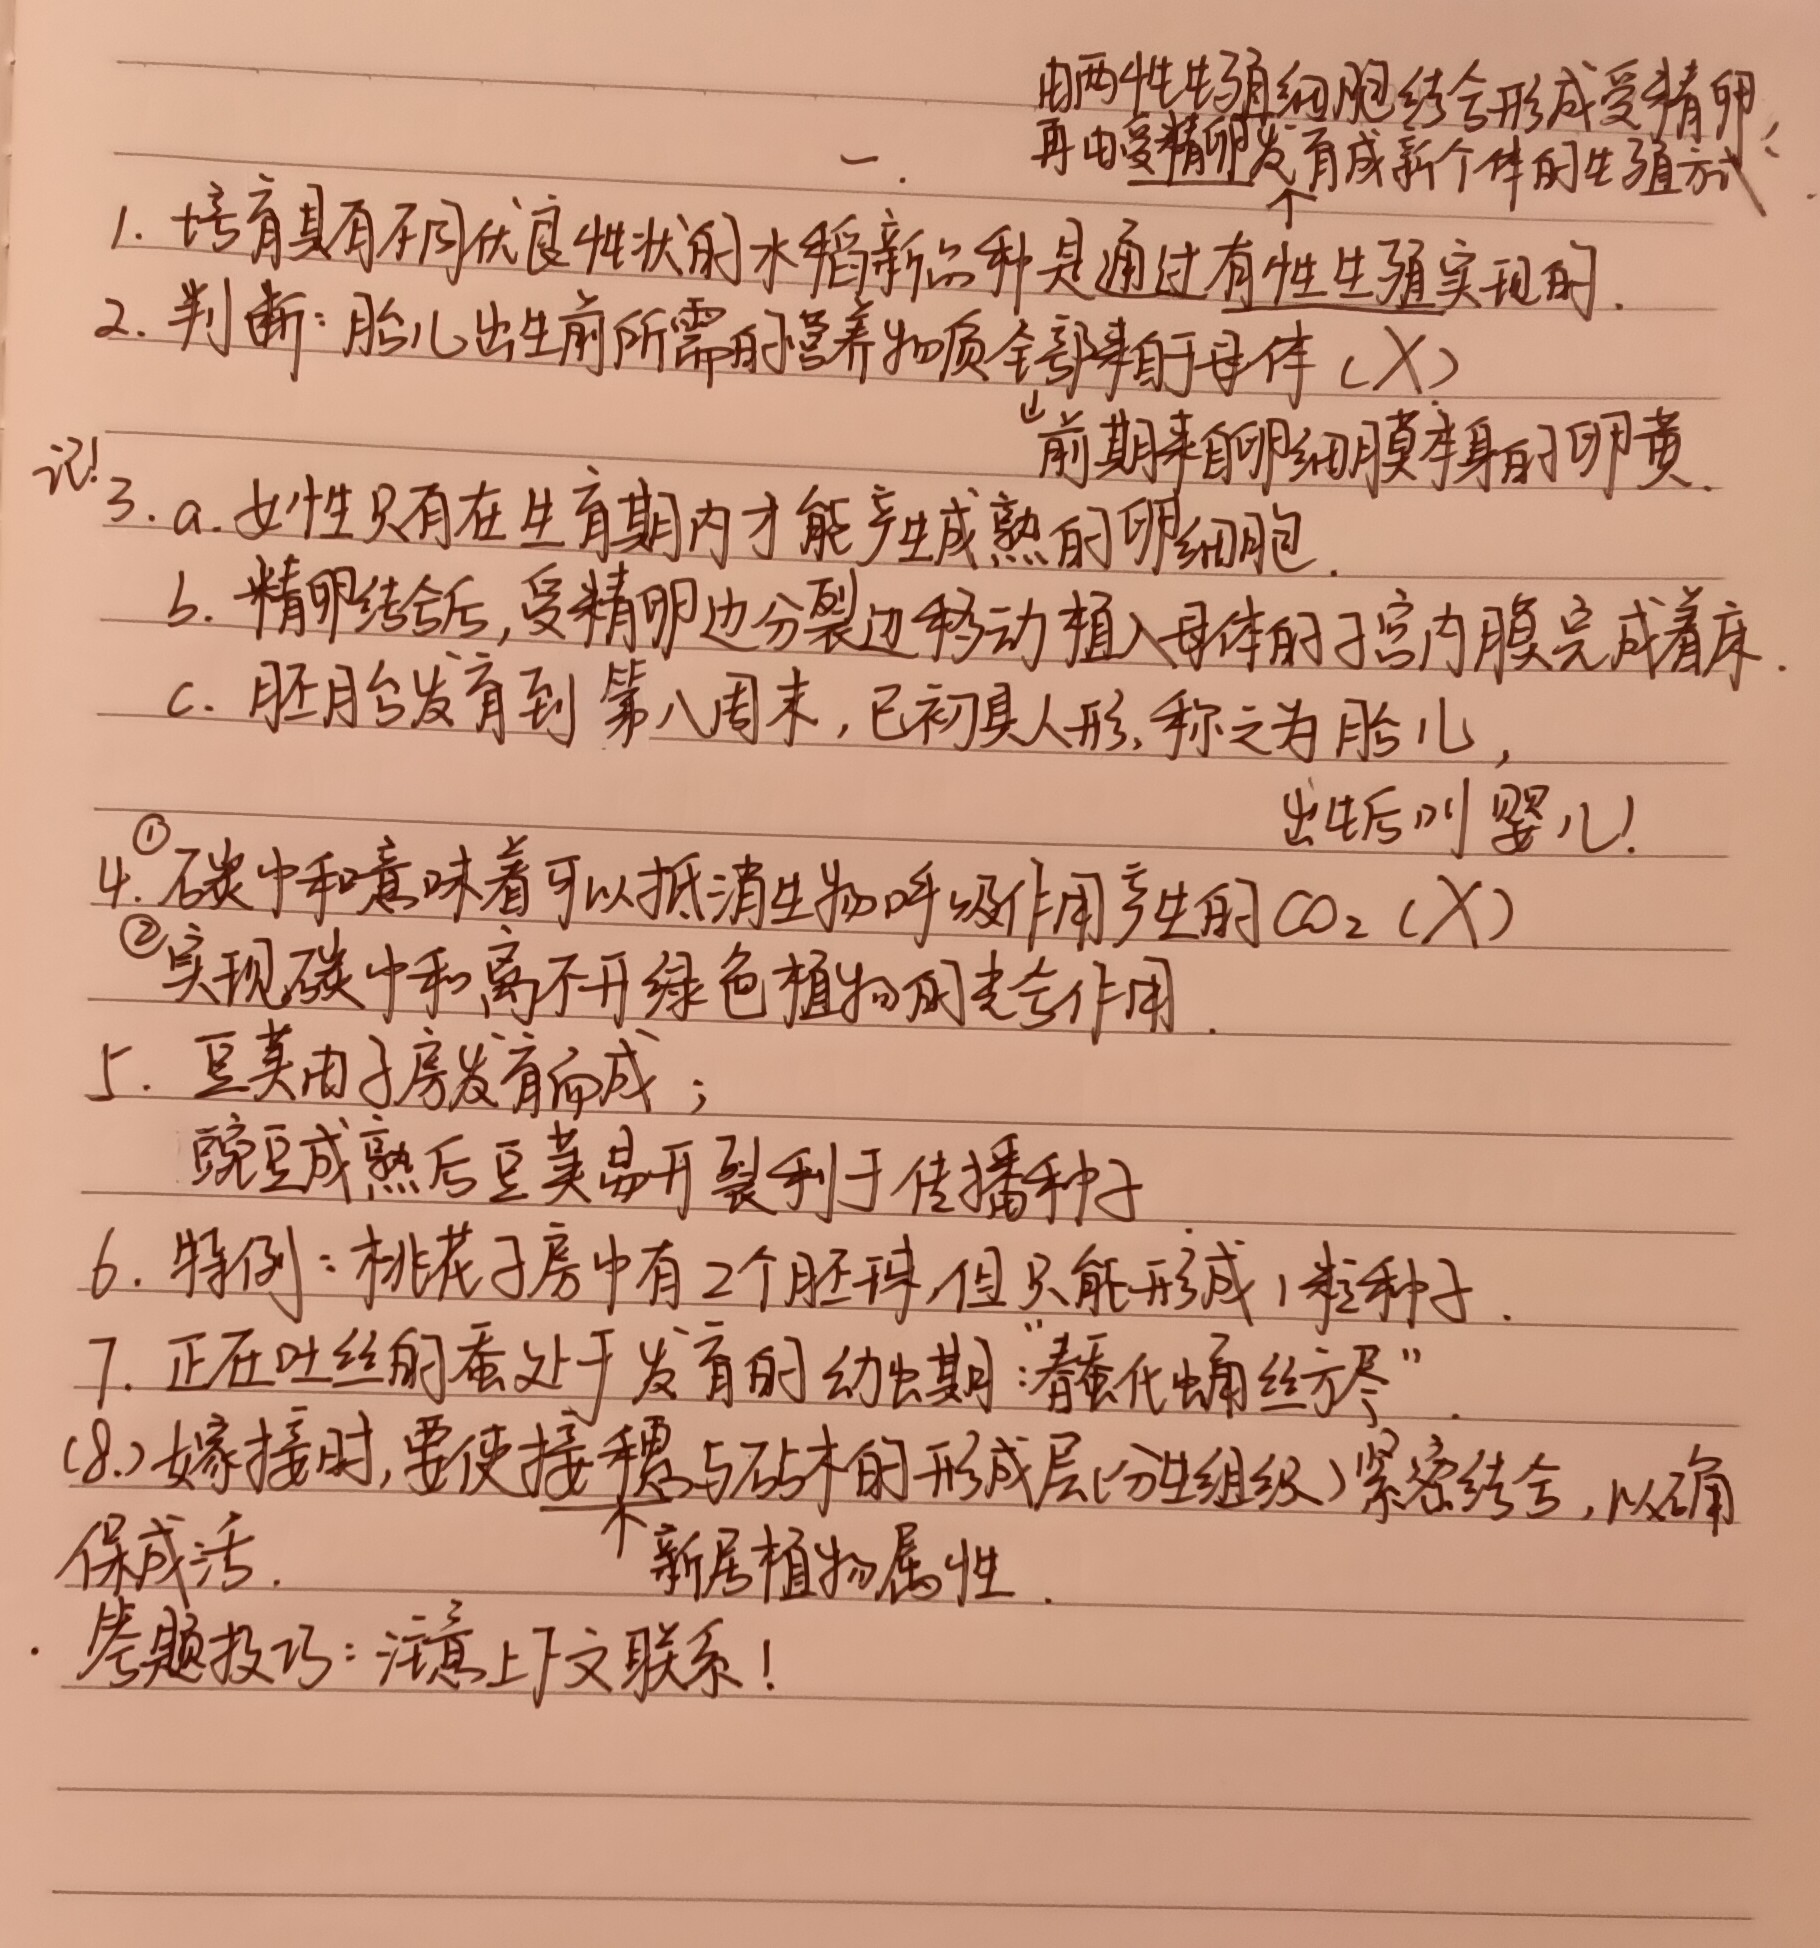 由两性生殖细胞结合形成受精卵,
再由受精卵发育成新个体的生殖方式.
一.
1. 培育具有不同优良性状的水稻新品种是通过有性生殖实现的.
2. 判断:胎儿出生前所需的营养物质全部来自于母体(X)
前期来自卵细膜本身的卵黄.
记!
3. a. 女性只有在生育期内才能产生成熟的卵细胞.
b. 精卵结合后,受精卵边分裂边移动植入母体的子宫内膜完成着床.
c. 胚胎发育到第八周末,已初具人形,称之为胎儿,
出生后叫婴儿!
4. ①碳中和意味着可以抵消生物呼吸作用产生的CO₂(X)
②实现碳中和离不开绿色植物的光合作用.
5. 豆荚由子房发育而成;
豌豆成熟后豆荚易开裂利于传播种子.
6. 特例:桃花子房中有2个胚珠,但只能形成1粒种子.
7. 正在吐丝的蚕处于发育的幼虫期:"春蚕化蛹丝方尽".
(8.)嫁接时,要使接穗与砧木的形成层(分生组织)紧密结合,以确
保成活.
新居植物属性.
答题技巧:注意上下文联系!